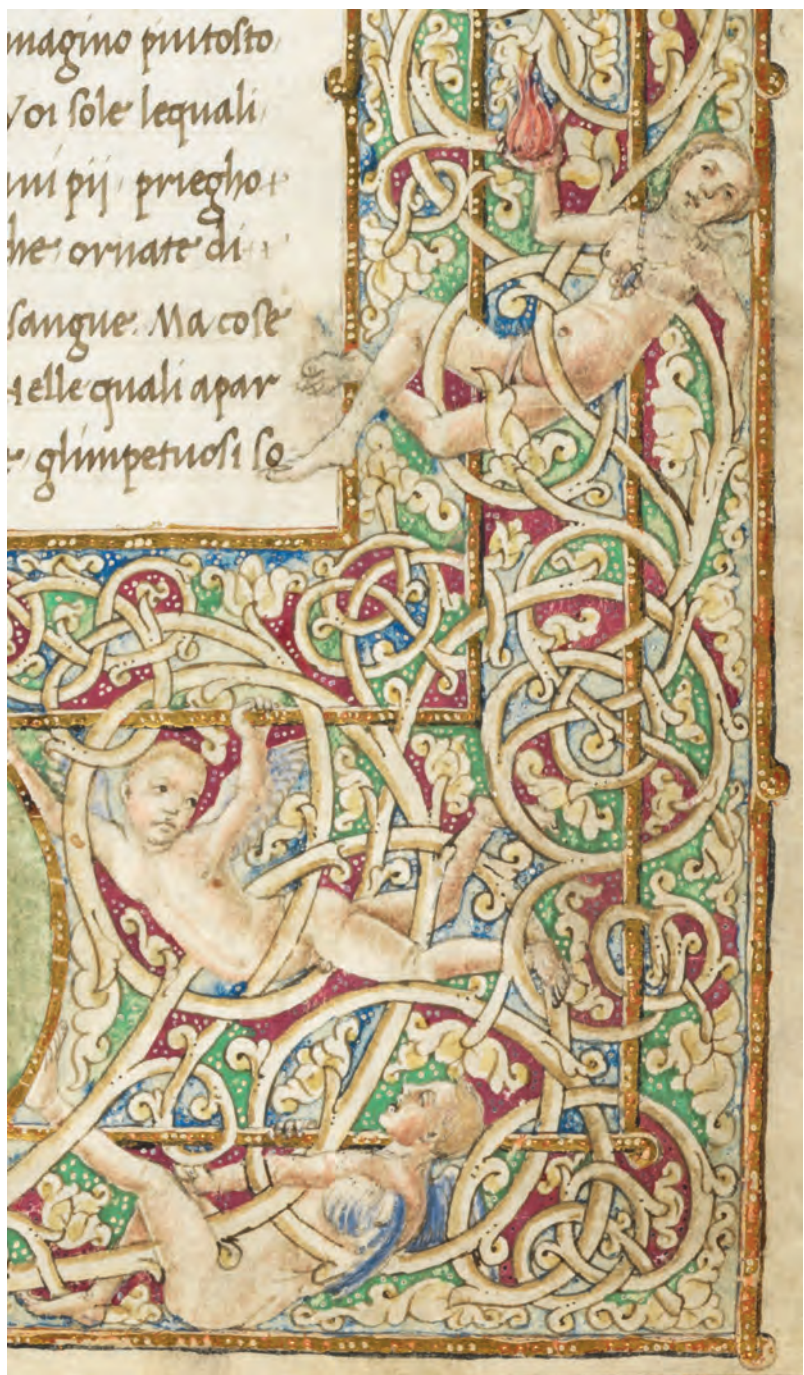 magino piu tosto
Voi sole lequali
pij priegho
he ornate di
sangue. Ma cose
Nelle quali apar
glimpetuosi so